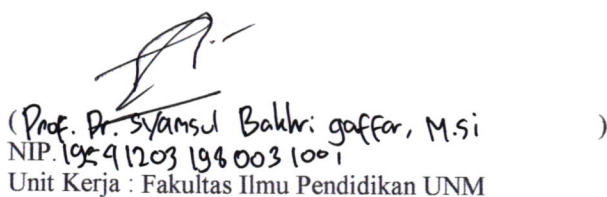 (Prof. Dr. Syamsul Bakhri gaffar, M.si )
NIP. 19541203 198003 1001
Unit Kerja : Fakultas Ilmu Pendidikan UNM